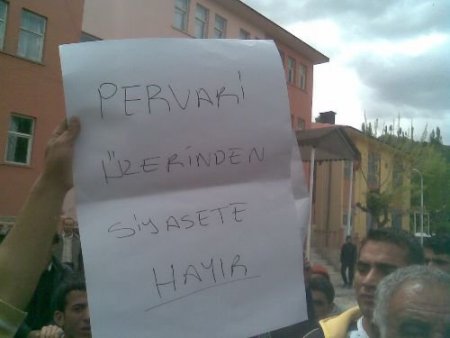 PERVARİ
ÜZERİNDEN
SİYASETE
HAYIR